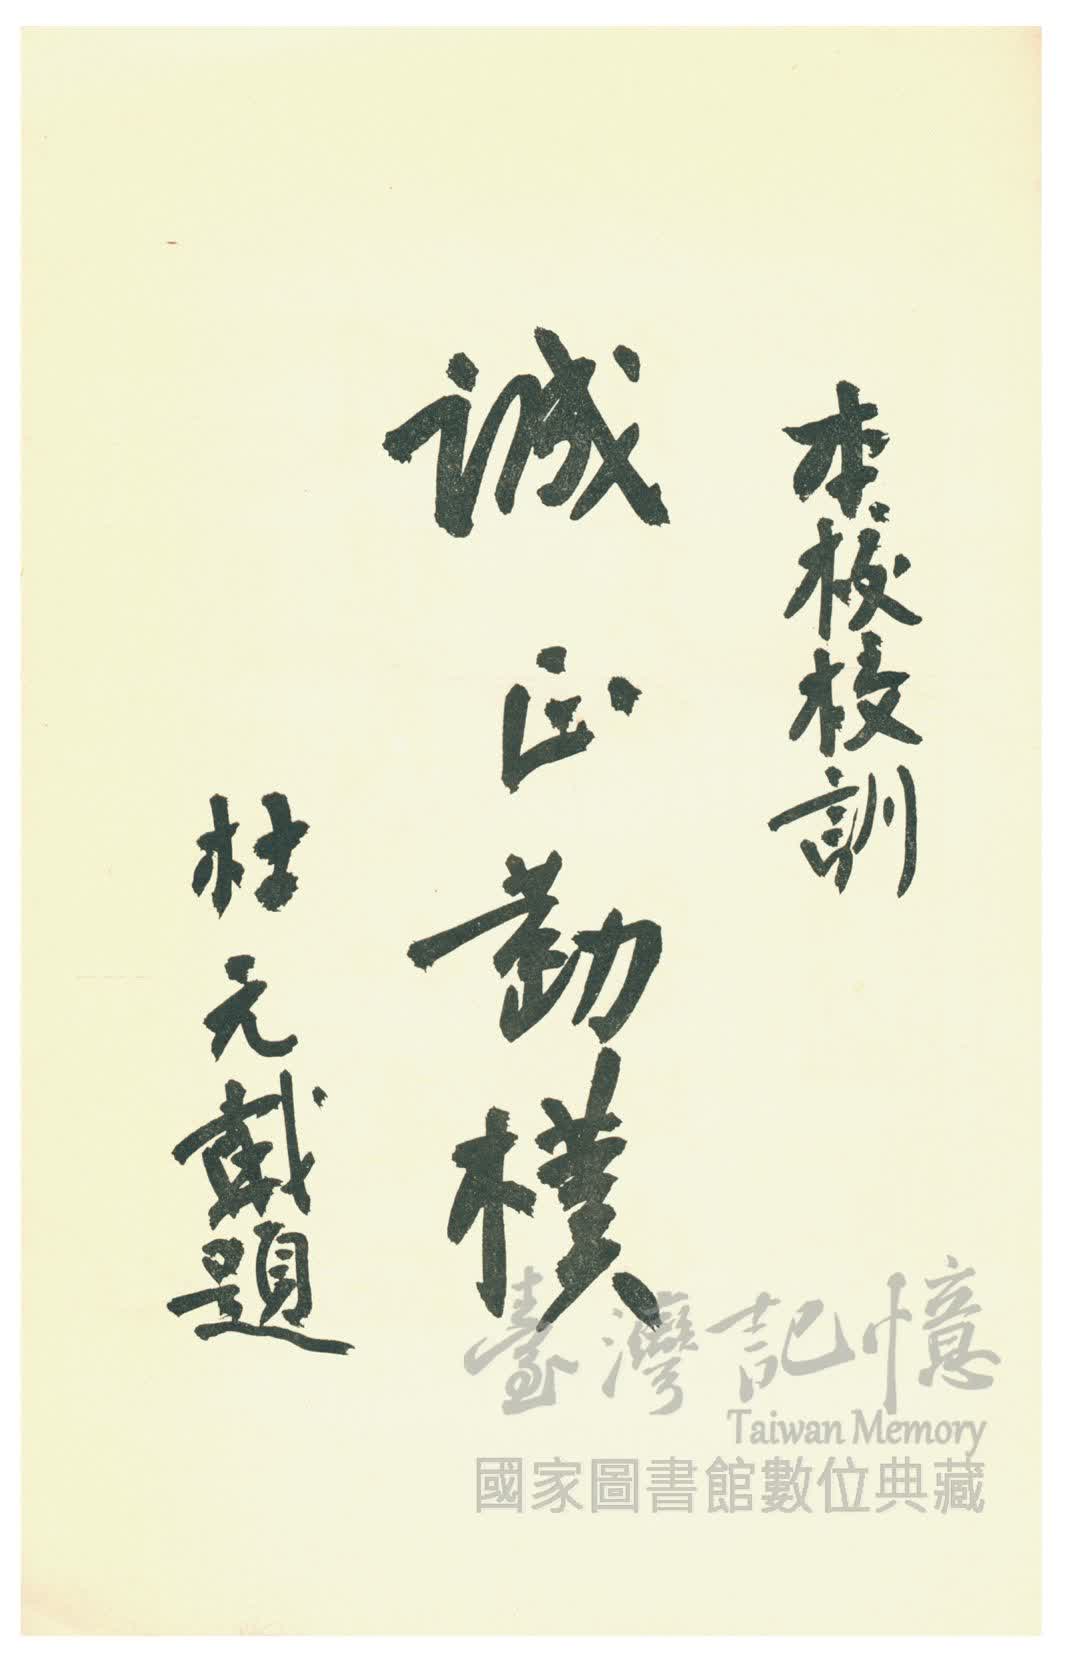 本校校訓
誠正勤樸
杜元載題
臺灣記憶
Taiwan Memory
國家圖書館數位典藏